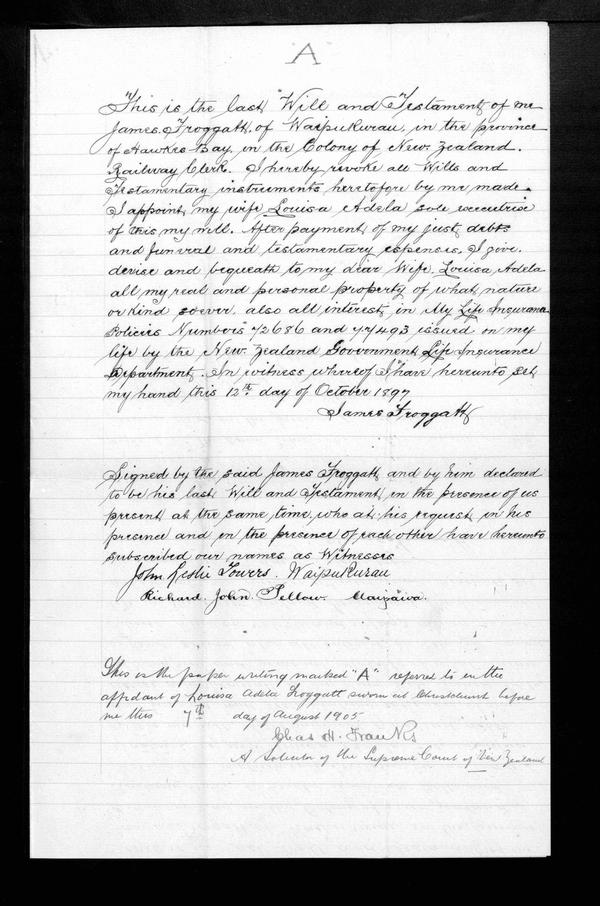 A
This is the last Will and Testament of me
James Froggatt of Waipukurau, in the province
of Hawkes Bay, in the Colony of New Zealand.
Railway Clerk. I hereby revoke all Wills and
Testamentary instruments heretofore by me made.
I appoint my wife Louisa Adela sole executrix
of this my will. After payment of my just debts
and funeral and testamentary expenses, I give,
devise and bequeath to my dear Wife, Louisa Adela
all my real and personal property of what nature
or kind soever. also all interest in My Life Insurance
Policies Numbers and issued on my
life by the New Zealand Government Life Insurance
Department. In witness whereof I have hereunto set
my hand this 12th day of October 1897
James Froggatt
Signed by the said James Froggatt and by him declared
to be his last Will and Testament, in the presence of us
present at the same time, who at his request, in his
presence and in the presence of each other have hereunto
subscribed our names as Witnesses
John Leslie Towers. Waipukurau
Richard. John. Pellow.
This is the paper writing marked "A" referred to in the
affidavit of Louisa Adela Froggatt sworn at Christchurch before
me this 7th day of August 1905
Chas H. Franks
A Solicitor of the Supreme Court of New Zealand